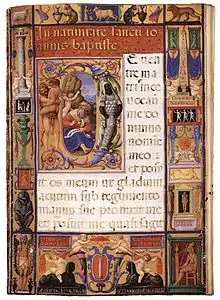 In nativitate sancti io
annis baptiste
E ven
tre ma
me do
minus
meo
et posu
it os meum ut gladium
acutum sub tegumento
manus sue protexit me
et posuit me quasi sagit